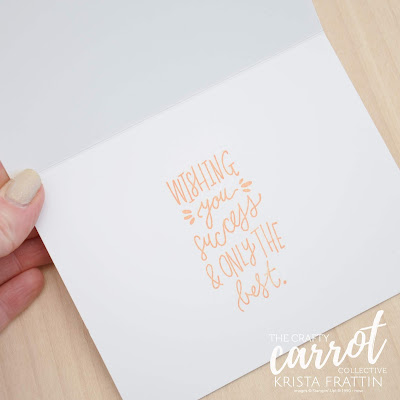 WISHING
you
success
& ONLY THE
best.
THE CRAFTY
carrot
COLLECTIVE
KRISTA FRATTIN